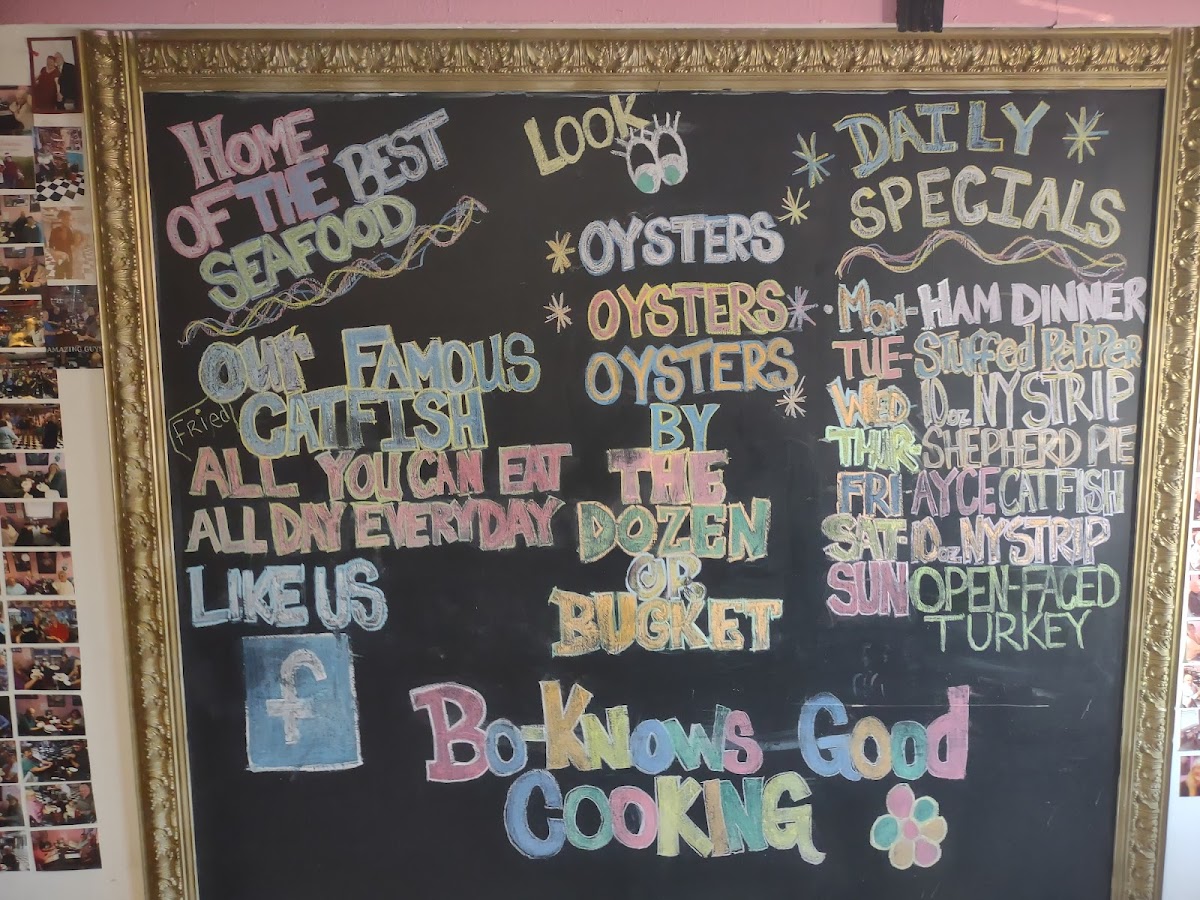 HOME
OF THE BEST
SEAFOOD
Our FAMOUS
Fried
CATFISH
ALL YOU CAN EAT
ALL DAY EVERYDAY
LIKE US
f
LOOK
OYSTERS
OYSTERS
OYSTERS
BY
THE
DOZEN
OR
BUCKET
DAILY
SPECIALS
MON- HAM DINNER
TUE- Stuffed PePPeR
WED- 10oz NY STRIP
THUR- SHEPHERD PIE
FRI- AYCE CATFISH
SAT- 10oz. NY STRIP
SUN OPEN-FACED
TURKEY
BO-KNOWS GOOd
COOKING
AMAZING GUY